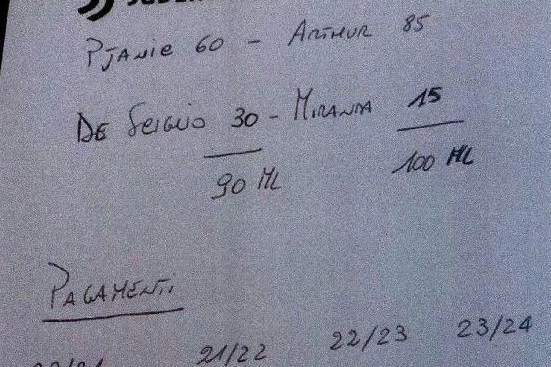 Pjanic 60 - Arthur 85
De Sciglio 30 - Miranda 15
90 ML 100 ML
Pagamenti
21/22 22/23 23/24